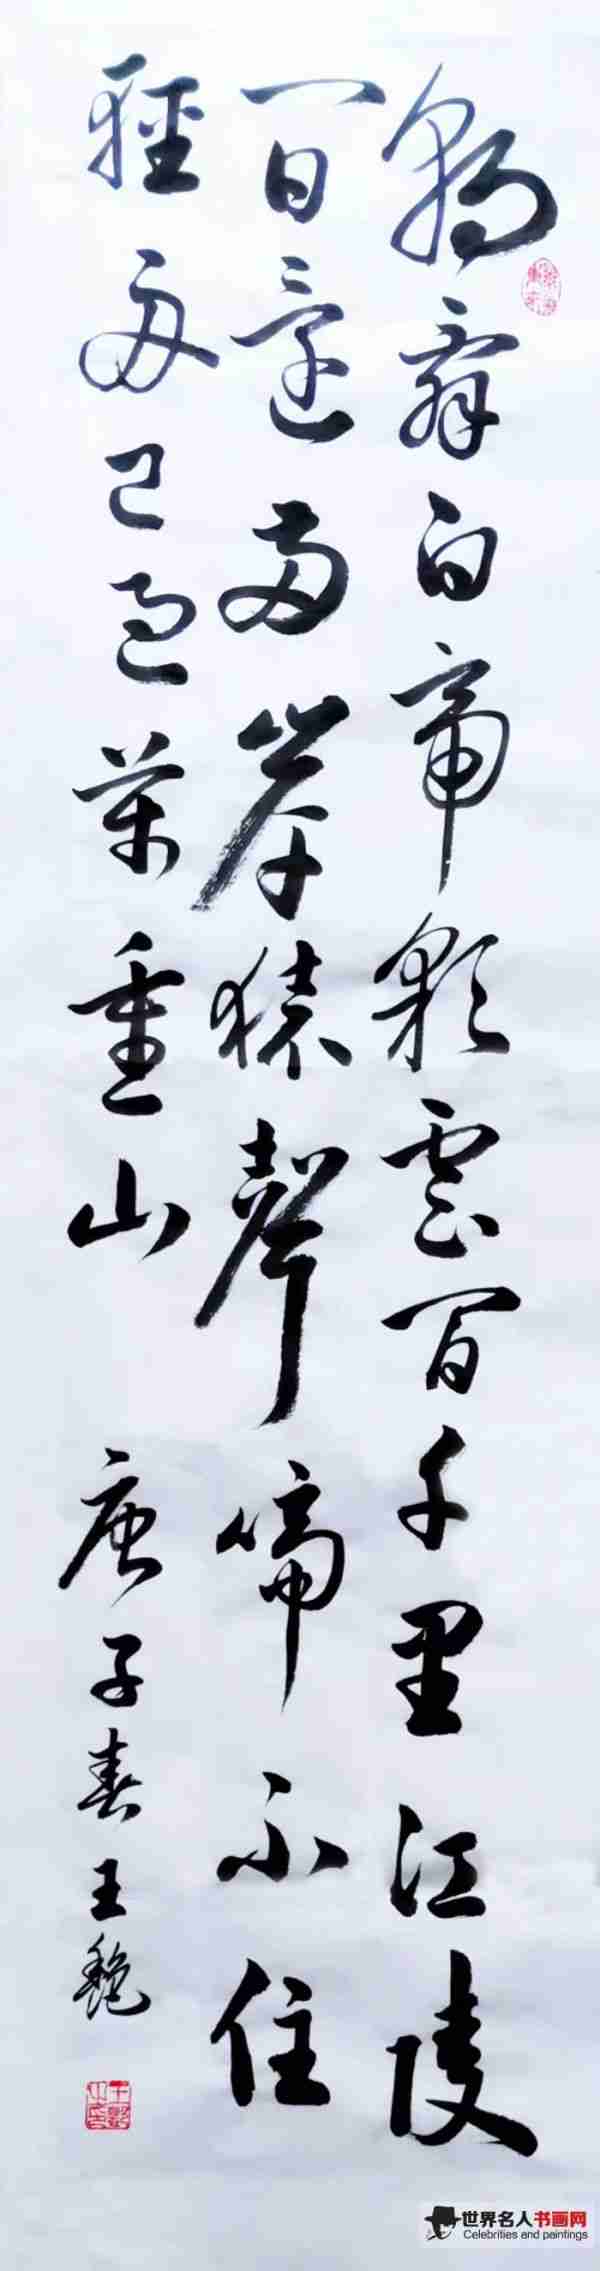 朝辭白帝彩雲間千里江陵
一日還兩岸猿聲啼不住
輕舟已過萬重山
庚子春王艷
世界名人书画网
Celebrities and paintings